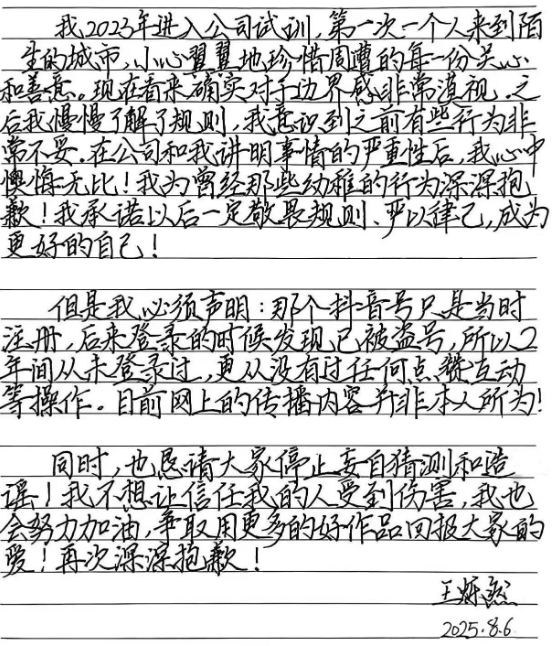 我2023年进入公司试训，第一次一个人来到陌
生的城市，小心翼翼地珍惜周遭的每一份关心
和善意。现在看来确实对于边界感非常漠视，之
后我慢慢了解了规则，我意识到之前有些行为非
常不妥。在公司和我讲明事情的严重性后，我心中
懊悔无比！我为曾经那些幼稚的行为深深抱
歉！我承诺以后一定敬畏规则、严以律己，成为
更好的自己！
但是我必须声明：那个抖音号只是当时
注册，后来登录的时候发现已被盗号，所以2
年间从未登录过，更从没有过任何点赞互动
等操作。目前网上的传播内容并非本人所为！
同时，也恳请大家停止妄自猜测和造
谣！我不想让信任我的人受到伤害，我也
会努力加油，争取用更多的好作品回报大家的
爱！再次深深抱歉！
王烁然
2025.8.6